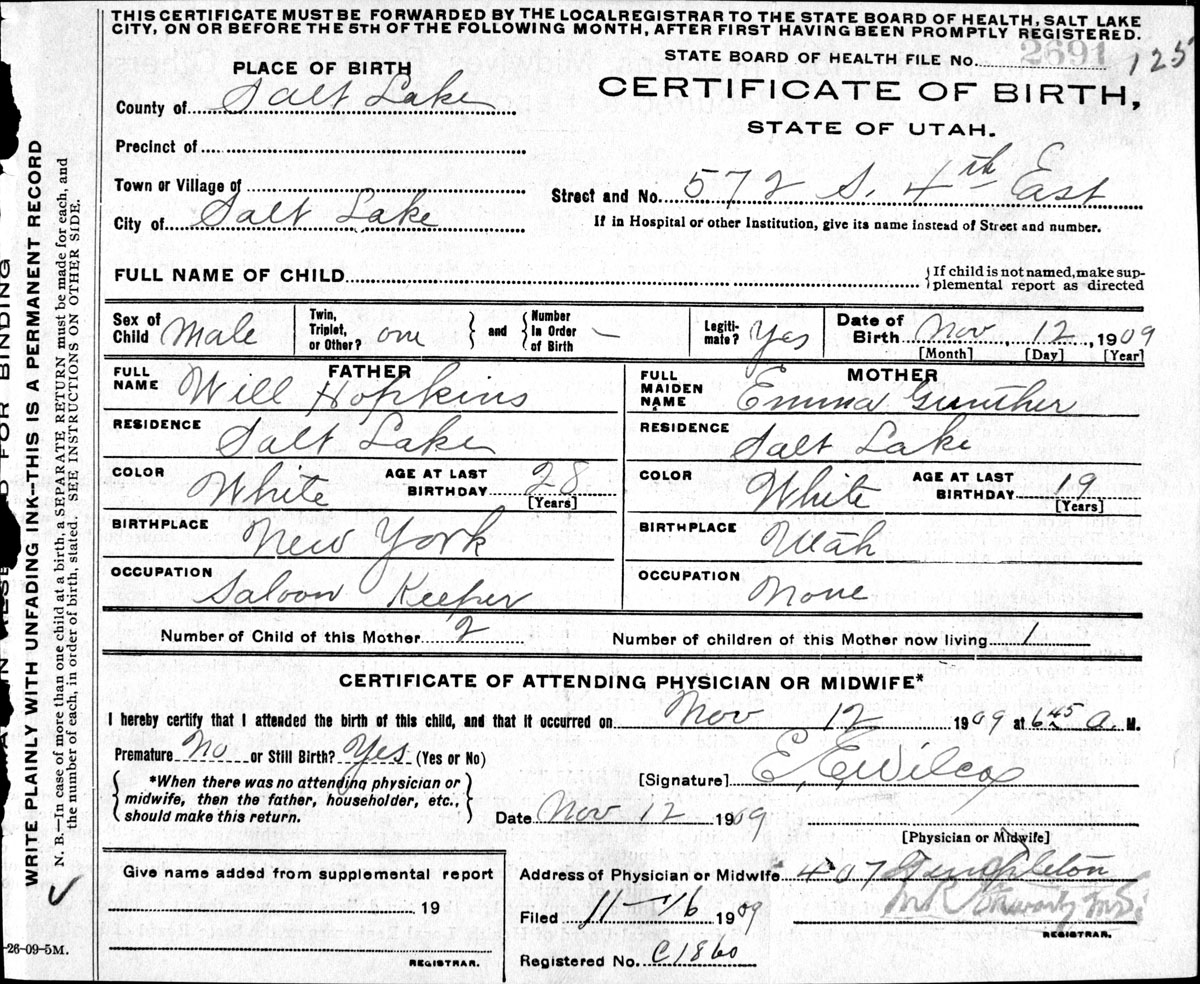 THIS CERTIFICATE MUST BE FORWARDED BY THE LOCAL REGISTRAR TO THE STATE BOARD OF HEALTH, SALT LAKE
CITY, ON OR BEFORE THE 5TH OF THE FOLLOWING MONTH, AFTER FIRST HAVING BEEN PROMPTLY REGISTERED.
STATE BOARD OF HEALTH FILE No. 2691 125
PLACE OF BIRTH
CERTIFICATE OF BIRTH,
STATE OF UTAH.
County of Salt Lake
Precinct of
Town or Village of
Street and No. 572 S. 4th East
City of Salt Lake
If in Hospital or other Institution, give its name instead of Street and number.
FULL NAME OF CHILD
If child is not named, make sup-
plemental report as directed
Sex of Child Male
Twin, Triplet, or Other? one
and
Number In Order of Birth —
Legiti-mate? Yes
Date of Birth Nov 12, 1909
[Month] [Day] [Year]
FATHER
MOTHER
FULL NAME Will Hopkins
FULL MAIDEN NAME Emma Gunther
RESIDENCE Salt Lake
RESIDENCE Salt Lake
COLOR White AGE AT LAST BIRTHDAY 28 [Years]
COLOR White AGE AT LAST BIRTHDAY 19 [Years]
BIRTHPLACE New York
BIRTHPLACE Utah
OCCUPATION Saloon Keeper
OCCUPATION None
Number of Child of this Mother 2 Number of children of this Mother now living 1
CERTIFICATE OF ATTENDING PHYSICIAN OR MIDWIFE*
I hereby certify that I attended the birth of this child, and that it occurred on Nov 12 1909 at 6 45 A. M.
Premature No or Still Birth? Yes (Yes or No)
*When there was no attending physician or
midwife, then the father, householder, etc.,
should make this return.
[Signature] E. E. Wilcox
Date Nov 12 1909
[Physician or Midwife]
Give name added from supplemental report
19
REGISTRAR.
Address of Physician or Midwife 407 Templeton
Filed 11-16 1909
REGISTRAR.
Registered No. C1860
WRITE PLAINLY WITH UNFADING INK—THIS IS A PERMANENT RECORD
N. B.—In case of more than one child at a birth, a SEPARATE RETURN must be made for each, and
the number of each, in order of birth, stated. SEE INSTRUCTIONS ON OTHER SIDE.
FOR BINDING
-26-09-5M.